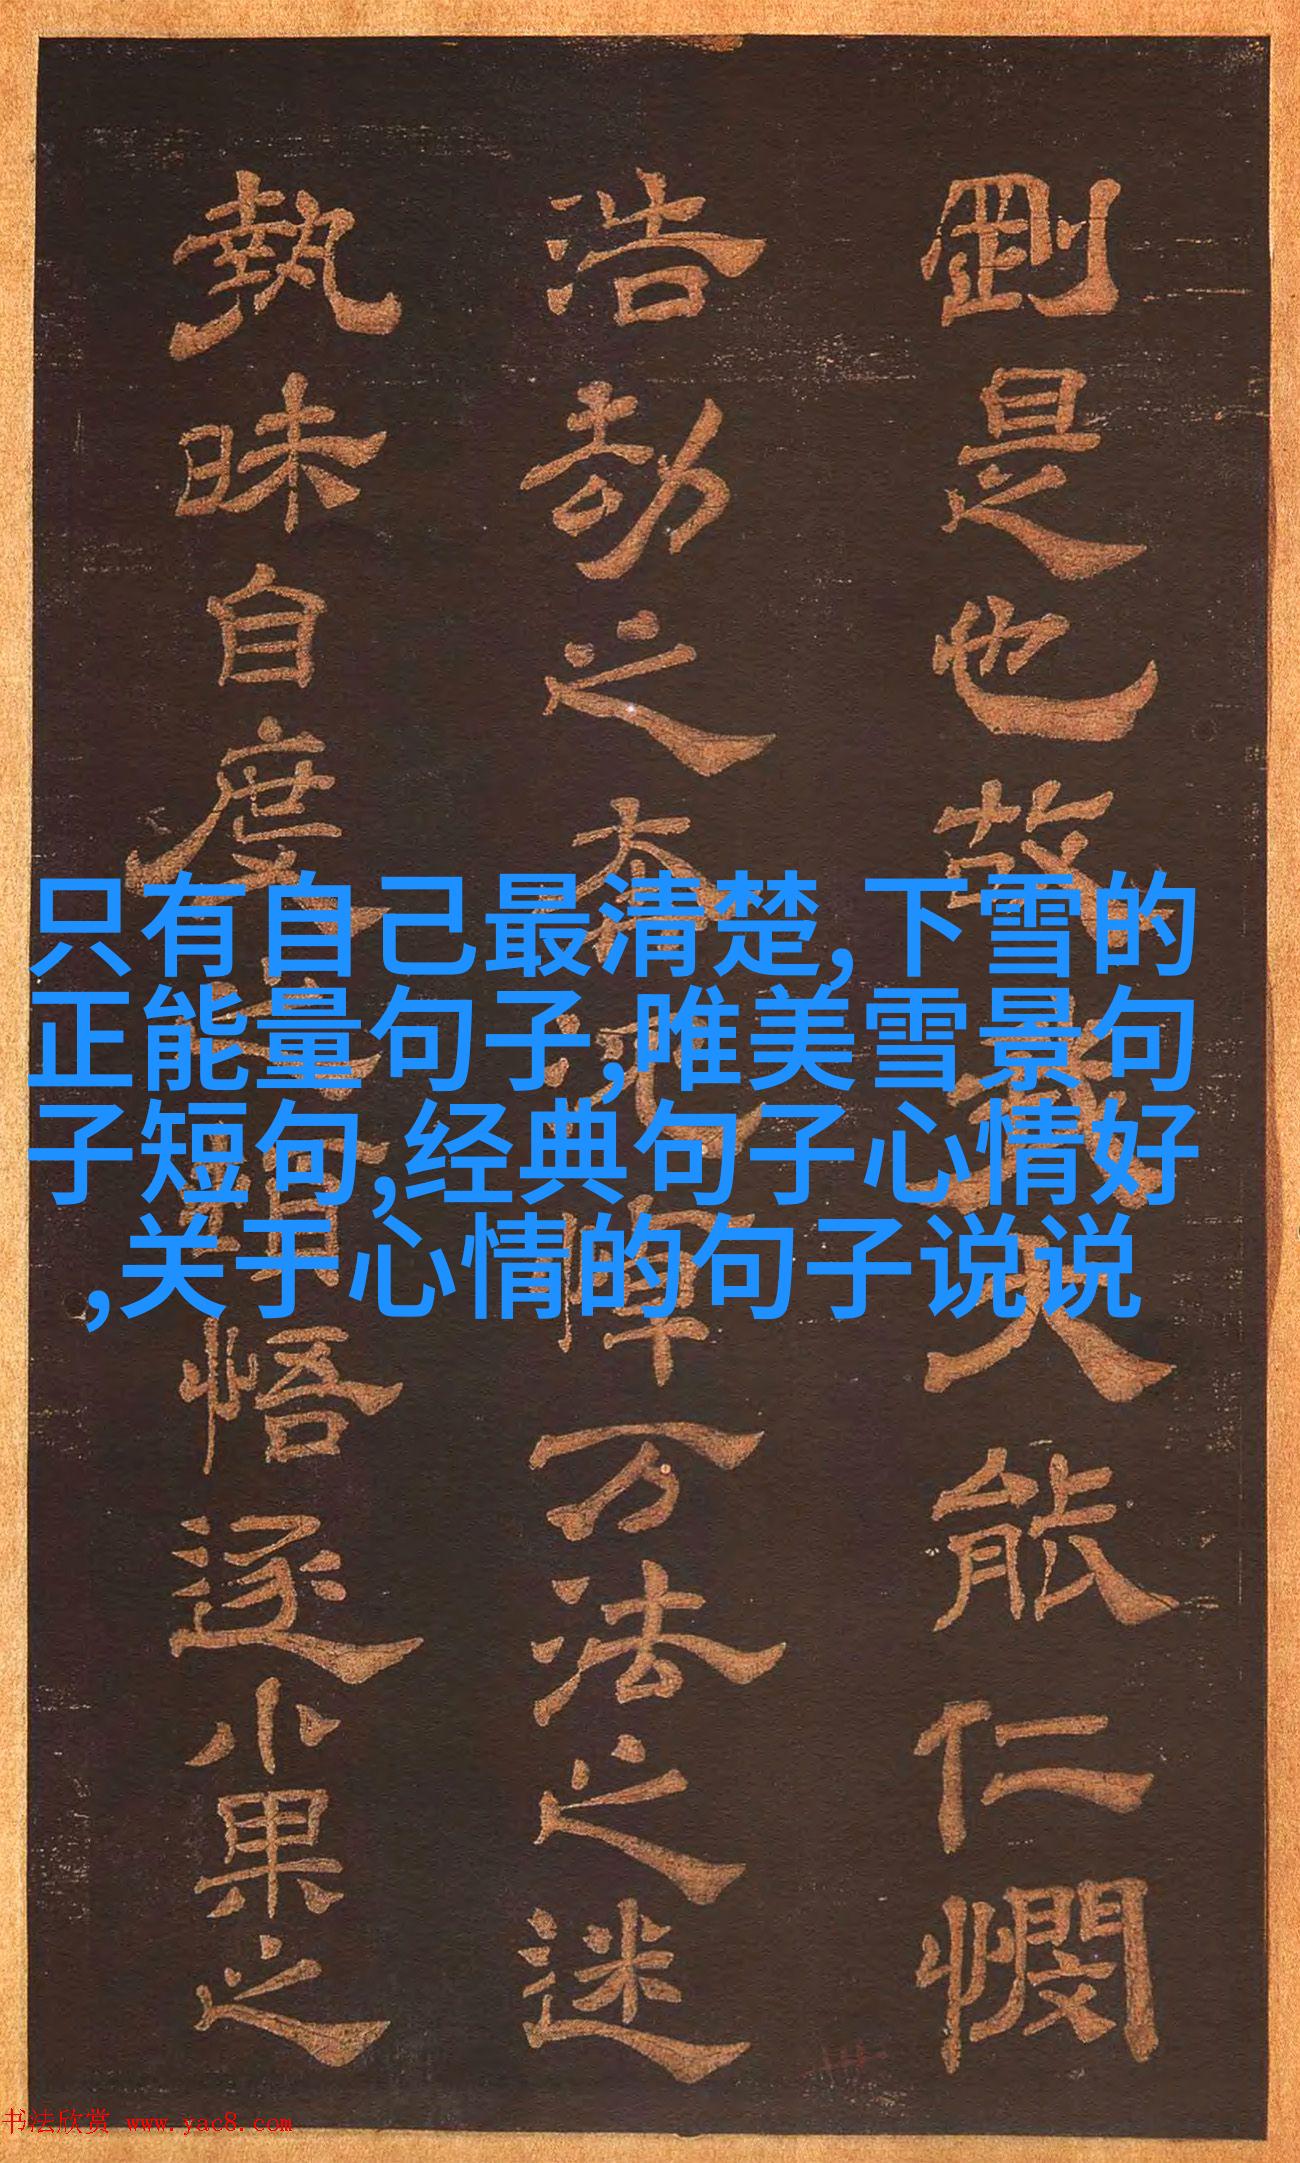 剛是也故我大能仁憫
浩劫之夲悼万法之迷
執昧自度悟逐小果之
只有自己最清楚,下雪的
正能量句子,唯美雪景句
子短句,经典句子心情好
,关于心情的句子说说
书法欣赏 www.yac8.com